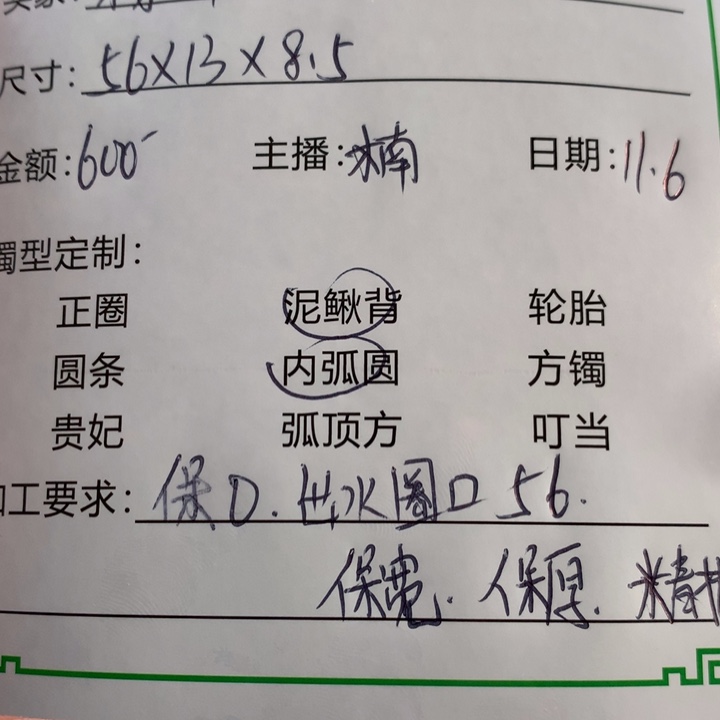 尺寸: 56×13×8.5
金额: 600 主播: 楠 日期: 11.6
镯型定制:
正圈 泥鳅背 轮胎
圆条 内弧圆 方镯
贵妃 弧顶方 叮当
加工要求: 保口. 出水圈口 56.
保宽. 保厚. 精